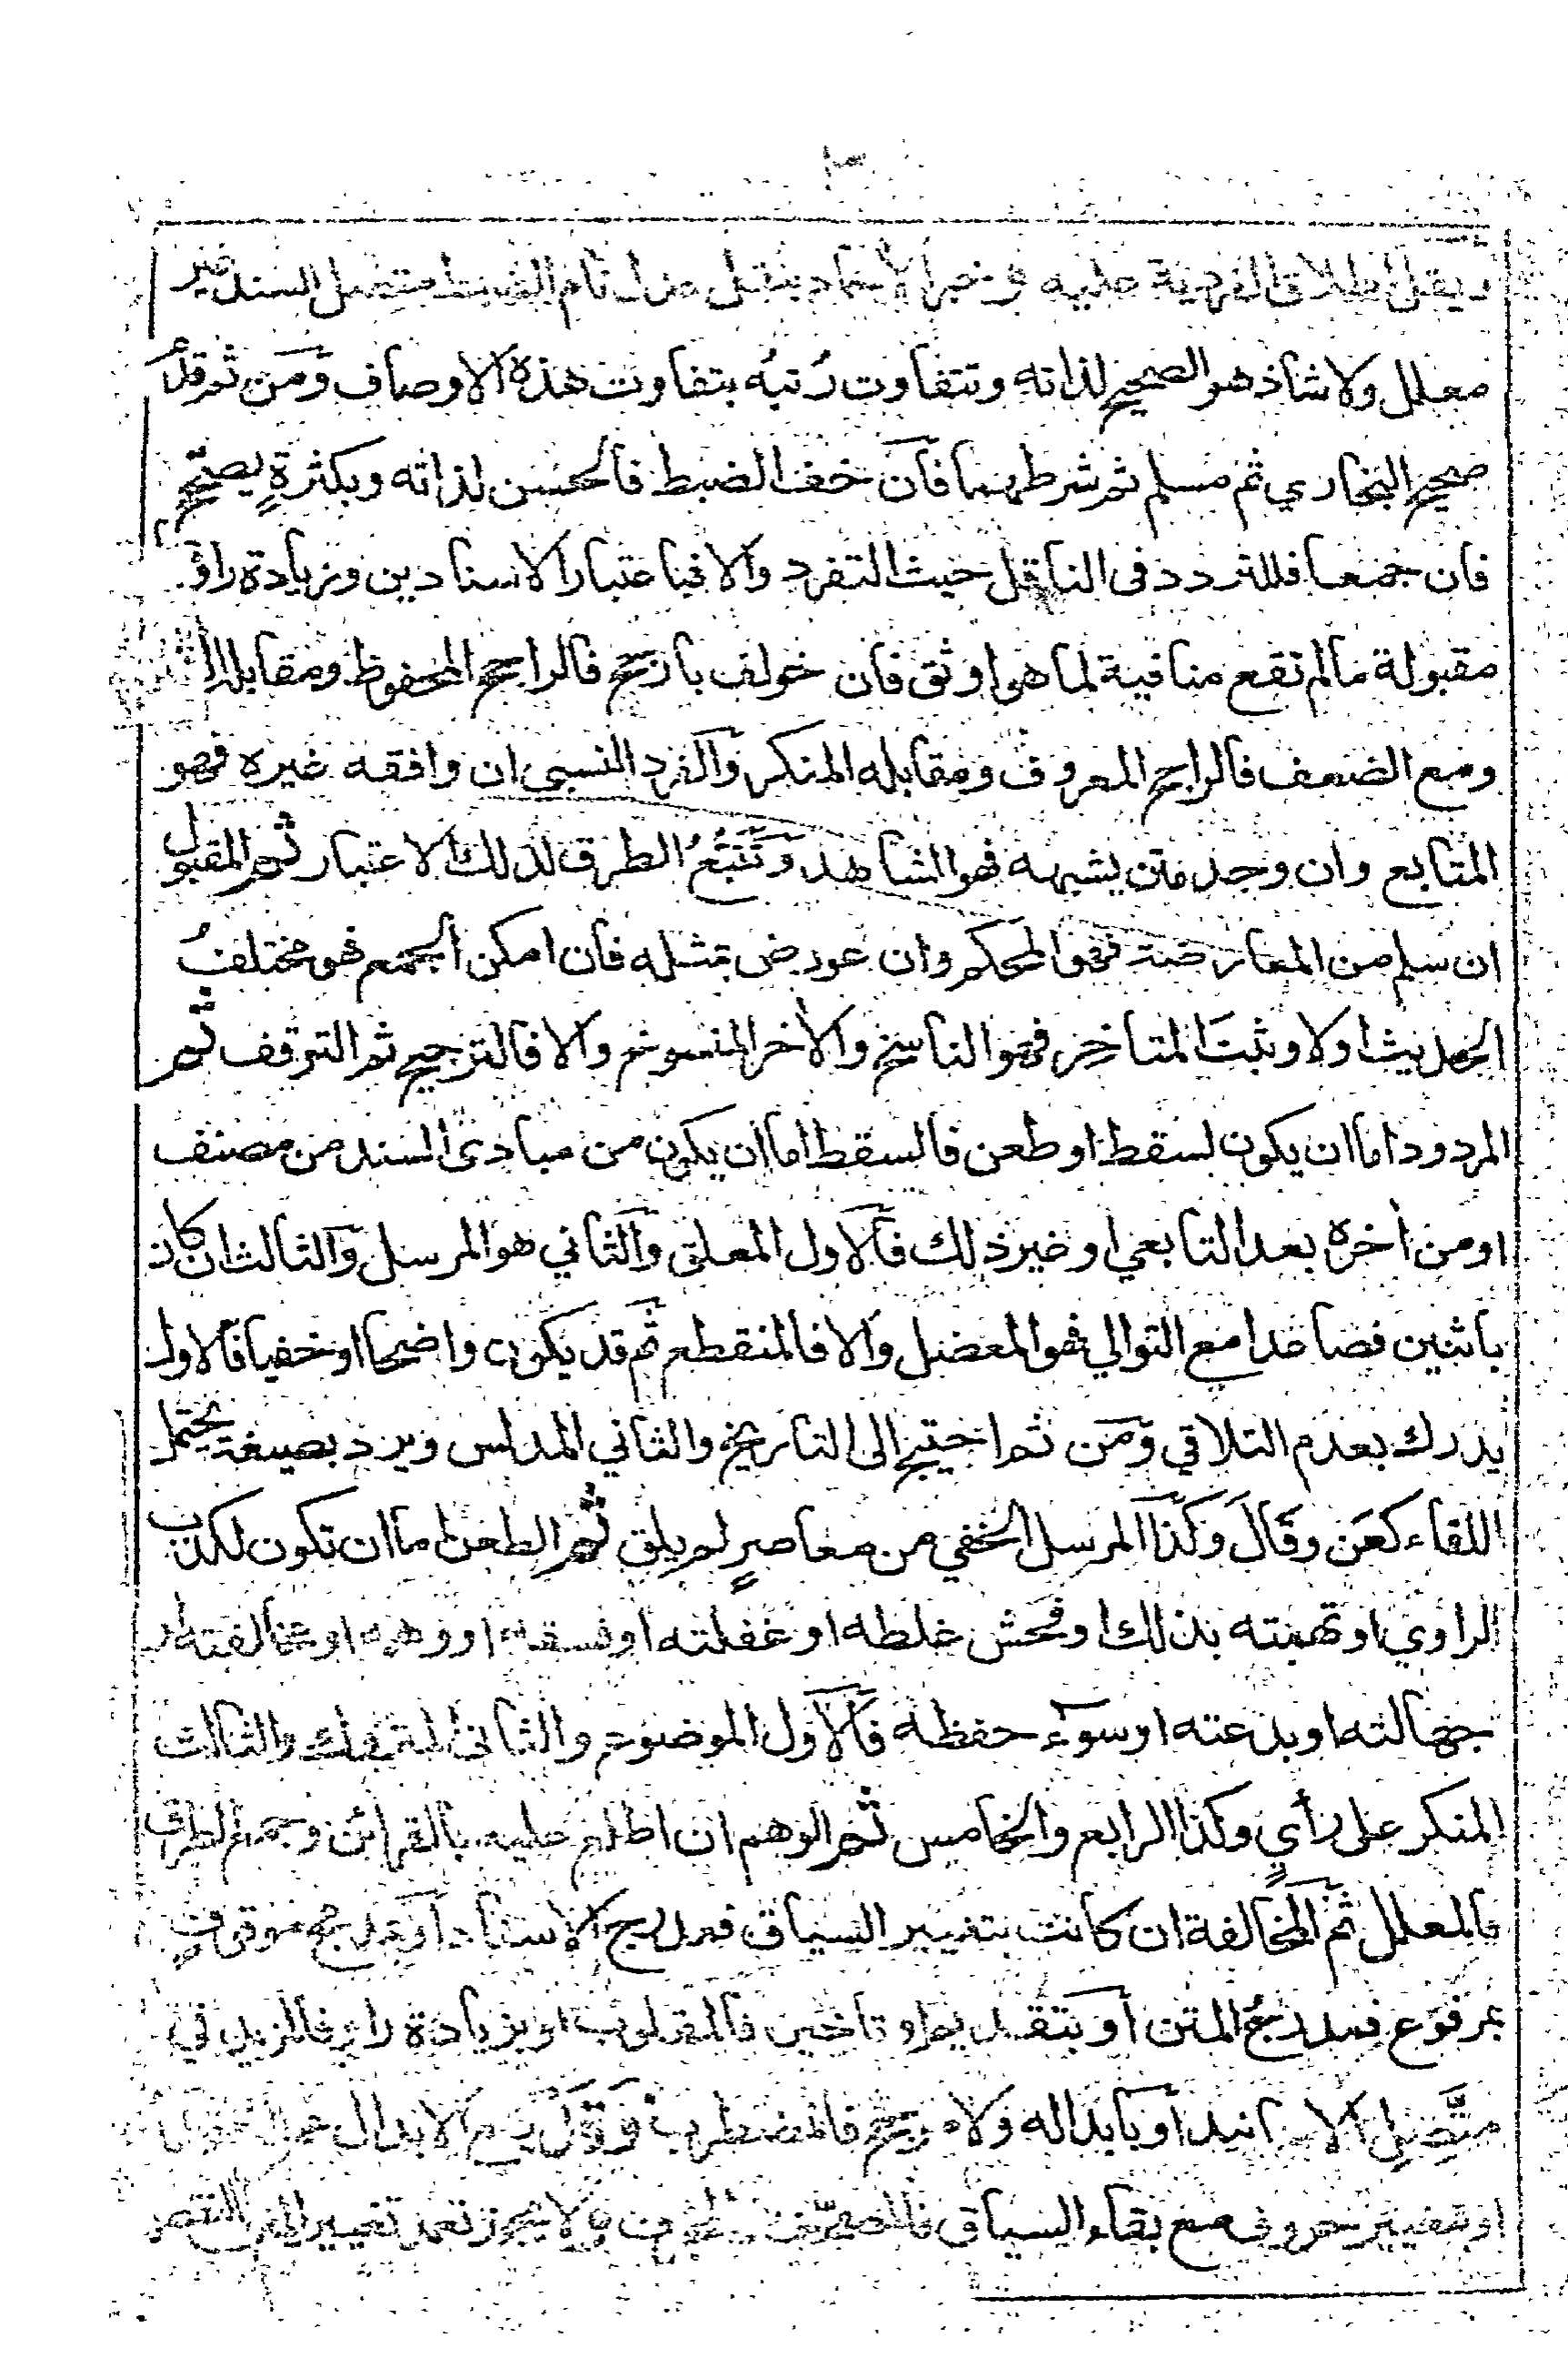 ويقل اطلاق الفردية عليه وخبر الآحاد بنقل عدل تام الضبط متصل السند غير
معلل ولا شاذ هو الصحيح لذاته وتتفاوت رُتبُه بتفاوت هذه الاوصاف ومن ثم قدّم
صحيح البخاري ثم مسلم ثم شرطهما فان خف الضبط فالحسن لذاته وبكثرةِ يصحّح
فان جمعا فللتردد فى الناقل حيث التفرد والا فباعتبار الاسنادين وزيادة راو
مقبولة مالم تقع منافية لما هو اوثق فان خولف بارجح فالراجح المحفوظ ومقابله الشاذ
ومع الضعف فالراجح المعروف ومقابله المنكر والفرد النسبى ان وافقه غيره فهو
المتابع وان وجد متن يشبهه فهو الشاهد وتَتَبُّعُ الطرق لذلك الاعتبار ثم المقبول
ان سلم من المعارضة فهو المحكم وان عورض بمثله فان امكن الجمع فهو مختلفُ
الحديث اولا وثبتَ المتاخر فهو الناسخ والآخر المنسوخ والا فالترجيح ثم التوقف ثم
المردود اما ان يكون لسقط او طعن فالسقط اما ان يكون من مبادى السند من مصنف
او من آخره بعد التابعي او غير ذلك فالاول المعلق والثاني هو المرسل والثالث ان كان
باثنين فصاعدا مع التوالي فهو المعضل والا فالمنقطع ثم قد يكون واضحا او خفيا فالاول
يدرك بعدم التلاقي ومن ثم احتيج الى التاريخ والثاني المدلس ويرد بصيغة يحتمل
اللقاء كعَن وقَالَ وكذا المرسل الخفي من معاصرٍ لم يلق ثم الطعن اما ان تكون لكذب
الراوي او تهمته بذلك او فحش غلطه او غفلته او فسقه او وهمه او مخالفته او
جهالته او بدعته او سوء حفظه فالاول الموضوع والثانى المتروك والثالث
المنكر على رأيٍ وكذا الرابع والخامس ثم الوهم ان اطلع عليه بالقرائن وجمع الطرق
فالمعلل ثم المخالفة ان كانت بتغيير السياق فمدرج الاسناد او بدمج موقوفٍ
بمرفوع فمدرجُ المتن او بتقديم او تاخير فالمقلوب او بزيادة راوٍ فالمزيد في
متَّصِلِ الاسانيد او بابداله ولا مرجح فالمضطرب وقد يقع الابدال عمدا
او بتغيير حروف مع بقاء السياق فالمصحّف والمحرف ولا يجوز تعمد تغيير المتن بالنقص